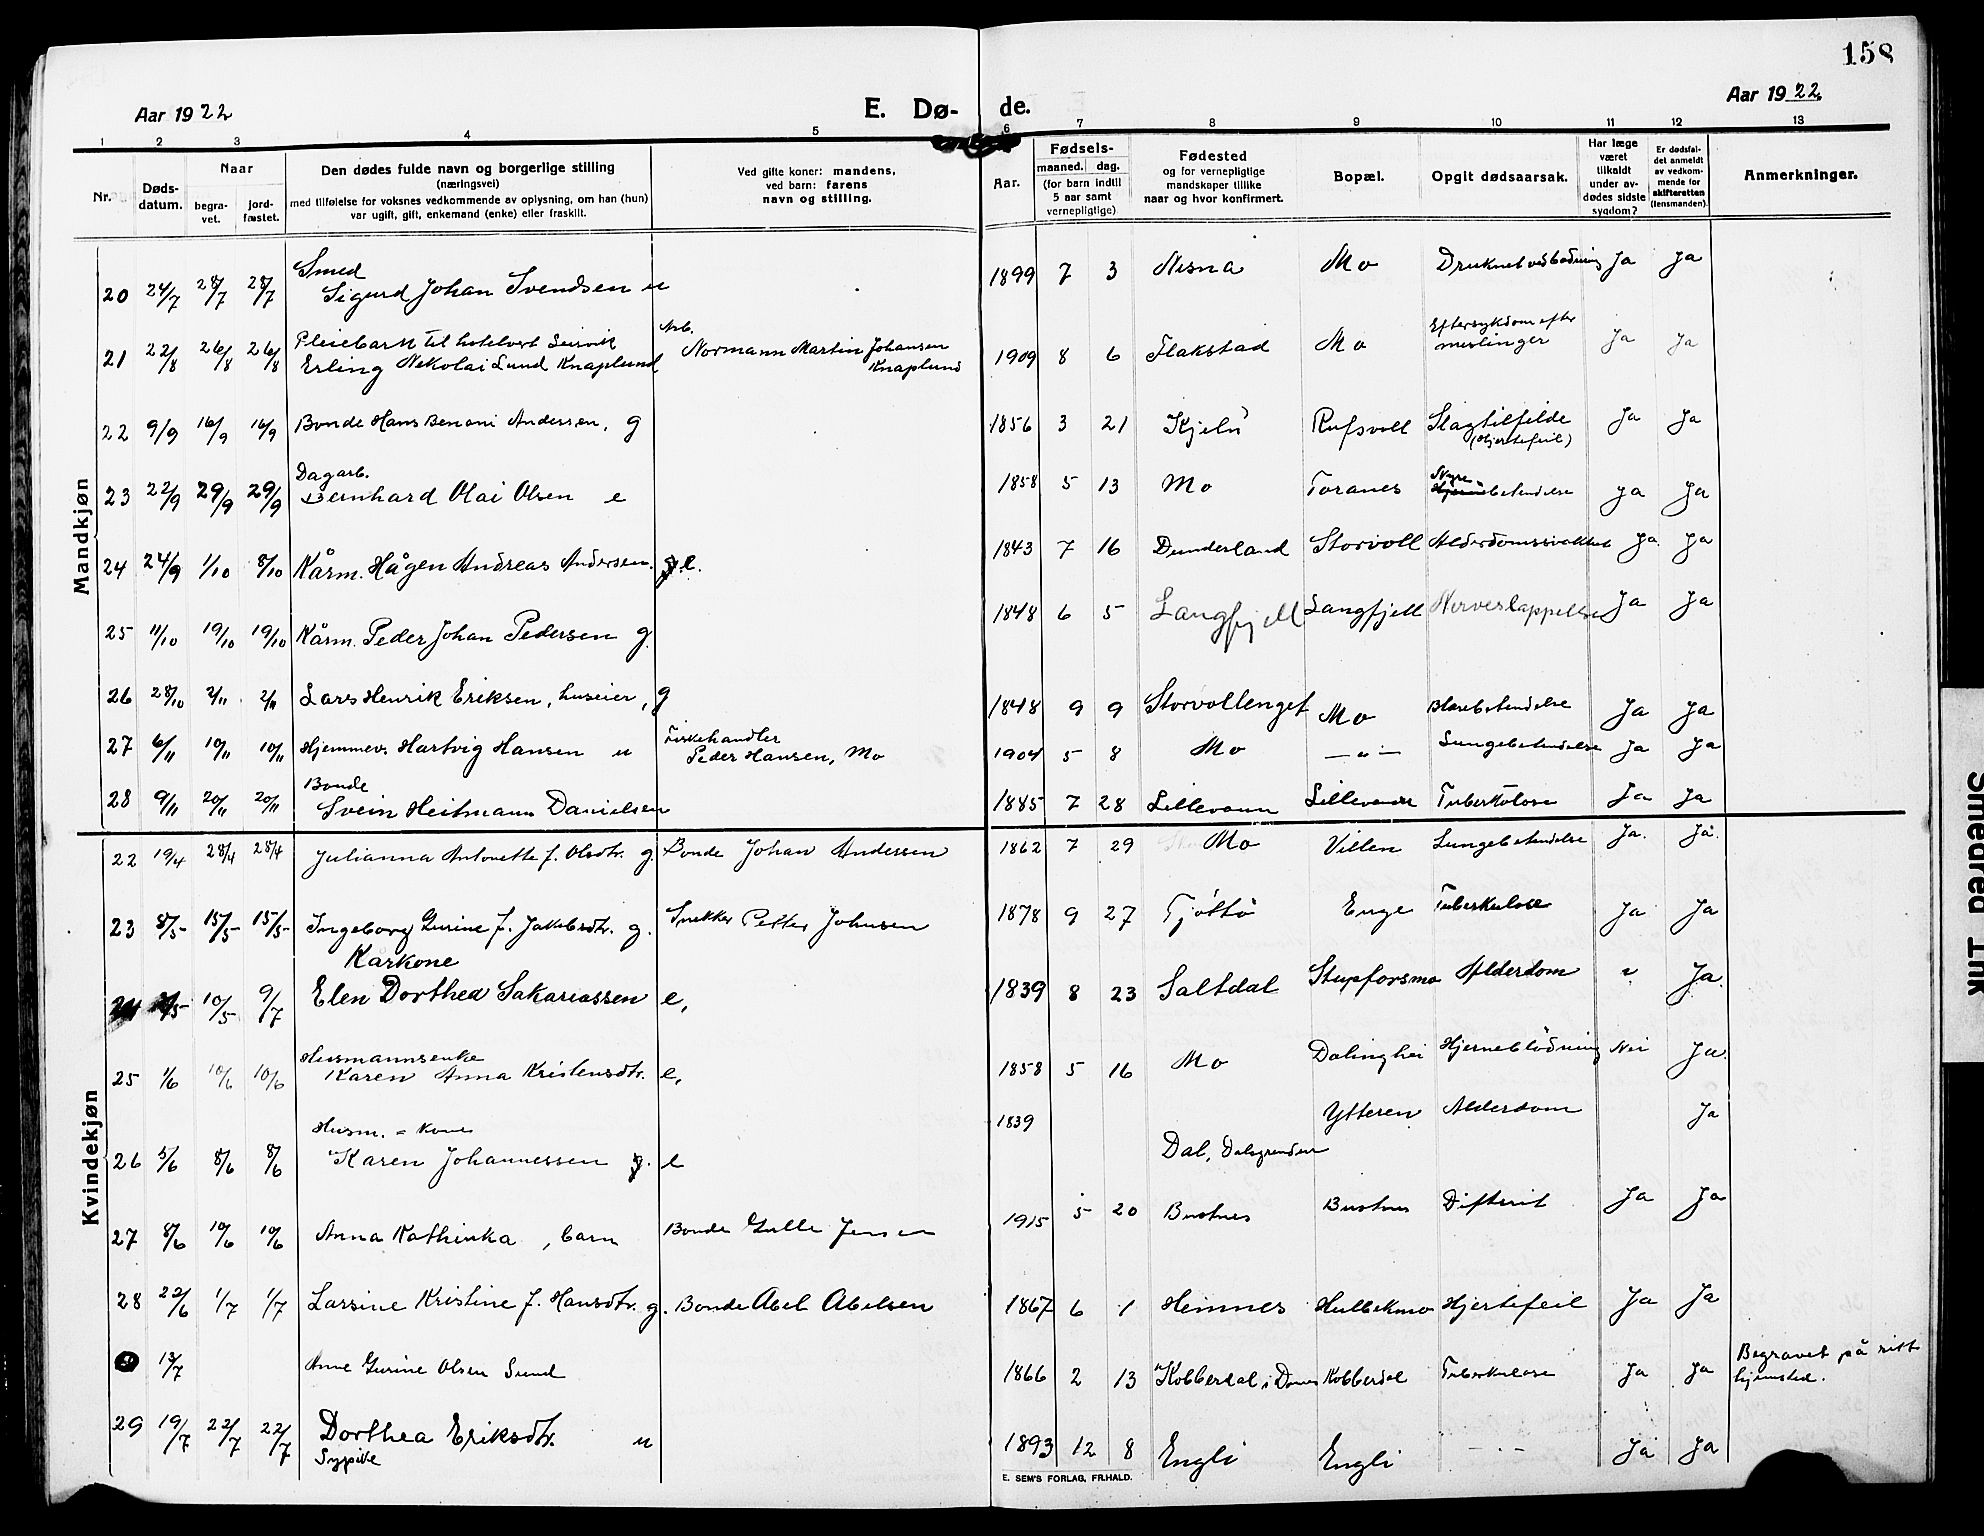 158
Aar 1922
E. Dø- de.
Aar 1922.
1 2 3 4 5 6 7 8 9 10 11 12 13
Nr. Døds-datum. Naar begra-vet. jord-fæstet. Den dødes fulde navn og borgerlige stilling (næringsvei) med tilføielse for voksnes vedkommende av oplysning, om han (hun) var ugift, gift, enkemand (enke) eller fraskilt. Ved gifte koner: mandens, ved barn: farens navn og stilling. Aar. Fødsels- maaned. dag. (for barn indtil 5 aar samt vernepligtige) Fødested og for vernepligtige mandskaper tillike naar og hvor konfirmert. Bopæl. Opgit dødsaarsak. Har læge været tilkaldt under av-dødes sidste sygdom? Er dødsfal-det anmeldt av vedkom-mende for skifteretten (lensmanden). Anmerkninger.
Mandkjøn
20 24/7 28/7 28/7 Smed Sigurd Johan Svendsen u 1899 7 3 Nesna Mo Druknet ved badning Ja Ja
21 22/8 26/8 26/8 Pleiebarn til hotelvert Seisvik Erling Nekolai Lund Knaplund Arb. Normann Martin Johansen Knaplund 1909 8 6 Flakstad Mo Eftersykdom efter meslinger Ja Ja
22 9/9 16/9 16/9 Bonde Hans Benoni Andersen, g 1856 3 21 Kjelø Rufsvoll Slagtilfælde (Hjertefeil) Ja Ja
23 22/9 29/9 29/9 Dagarb. Bernhard Olai Olsen e 1858 5 13 Mo Toranes Nyrebetendelse Ja Ja
24 24/9 1/10 8/10 Kårm. Hågen Andreas Andersen. e. 1843 7 16 Dunderland Storvoll Alderdomssvakhet Ja Ja
25 11/10 19/10 19/10 Kårm. Peder Johan Pedersen g. 1848 6 5 Langfjell Langfjell Nerveslappelse Ja Ja
26 28/10 2/11 2/11 Lars Henrik Eriksen, huseier, g 1848 9 9 Storvollenget Mo Blærebetendelse Ja Ja
27 6/11 10/11 10/11 Hjemmev. Hartvig Hansen u Fiskehandler Peder Hansen, Mo 1904 5 8 Mo — " — Lungebetendelse Ja Ja
28 9/11 20/11 20/11 Bonde Svein Heitmann Danielsen 1885 7 28 Lillevann Lillevann Tuberkulose Ja Ja
Kvindekjøn
22 19/4 28/4 28/4 Julianna Antonette f. Olsdtr. g. Bonde Johan Andersen 1862 7 29 Mo Villen Lungebetendelse Ja. Ja.
23 8/5 15/5 15/5 Ingeborg Gurine f. Jakobsdtr. g. Snekker Petter Johnsen 1878 9 27 Tjøttø Enge Tuberkulose Ja Ja
24 /5 10/5 9/7 Karkone Elen Dorthea Sakariassen e, 1839 8 23 Saltdal Stupforsmo Alderdom " Ja.
25 1/6 10/6 10/6 Husmannsenke Karen Anna Kristensdtr. e, 1858 5 16 Mo Dalinghei Hjerneblødning Nei Ja.
26 5/6 8/6 8/6 Husm. = kone Karen Johannessen e 1839 Dal, Dalsgrenden Ytteren Alderdom Ja
27 8/6 10/6 10/6 Anna Kathinka, barn Bonde Gulle Jensen 1915 5 20 Bustnes Bustnes Difterit Ja Ja
28 22/6 1/7 1/7 Larsine Kristine f. Hansdtr. g. Bonde Abel Abelsen 1867 6 1 Hemnes Hulbekmo Hjertefeil Ja Ja
13/7 Anne Gurine Olsen Sund 1866 2 13 Kobberdal i Dønnes Kobberdal Tuberkulose Ja Ja Begravet på sitt hjemsted.
29 19/7 22/7 22/7 Dorthea Eriksdtr. u Sypike 1893 12 8 Engli Engli — " — Ja Ja
E. SEM'S FORLAG, FR.HALD.
Smedred Trik